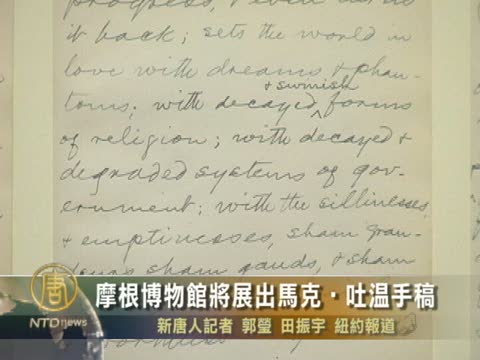 progress,
it back; sets the world in
love with dreams & phan-
& swinish
toms; with decayed ^ forms
of religion; with decayed &
degraded systems of gov-
ernment; with the sillinesses
& emptinesses, sham gran-
deurs sham gauds, & sham
唐 摩根博物館將展出馬克·吐温手稿
NTDnews 新唐人記者 郭瑩 田振宇 紐約報道